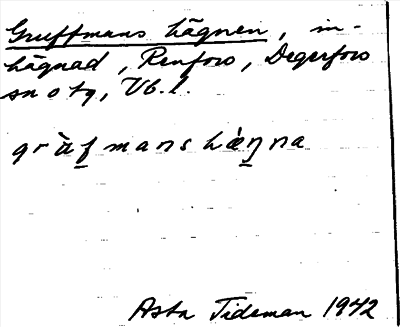 Gruffmans hägnen, in-
hägnad, Renfors, Degerfors
sn o tg, Vb. l.
gràf mans hæ̀ŋna
Asta Tideman 1942